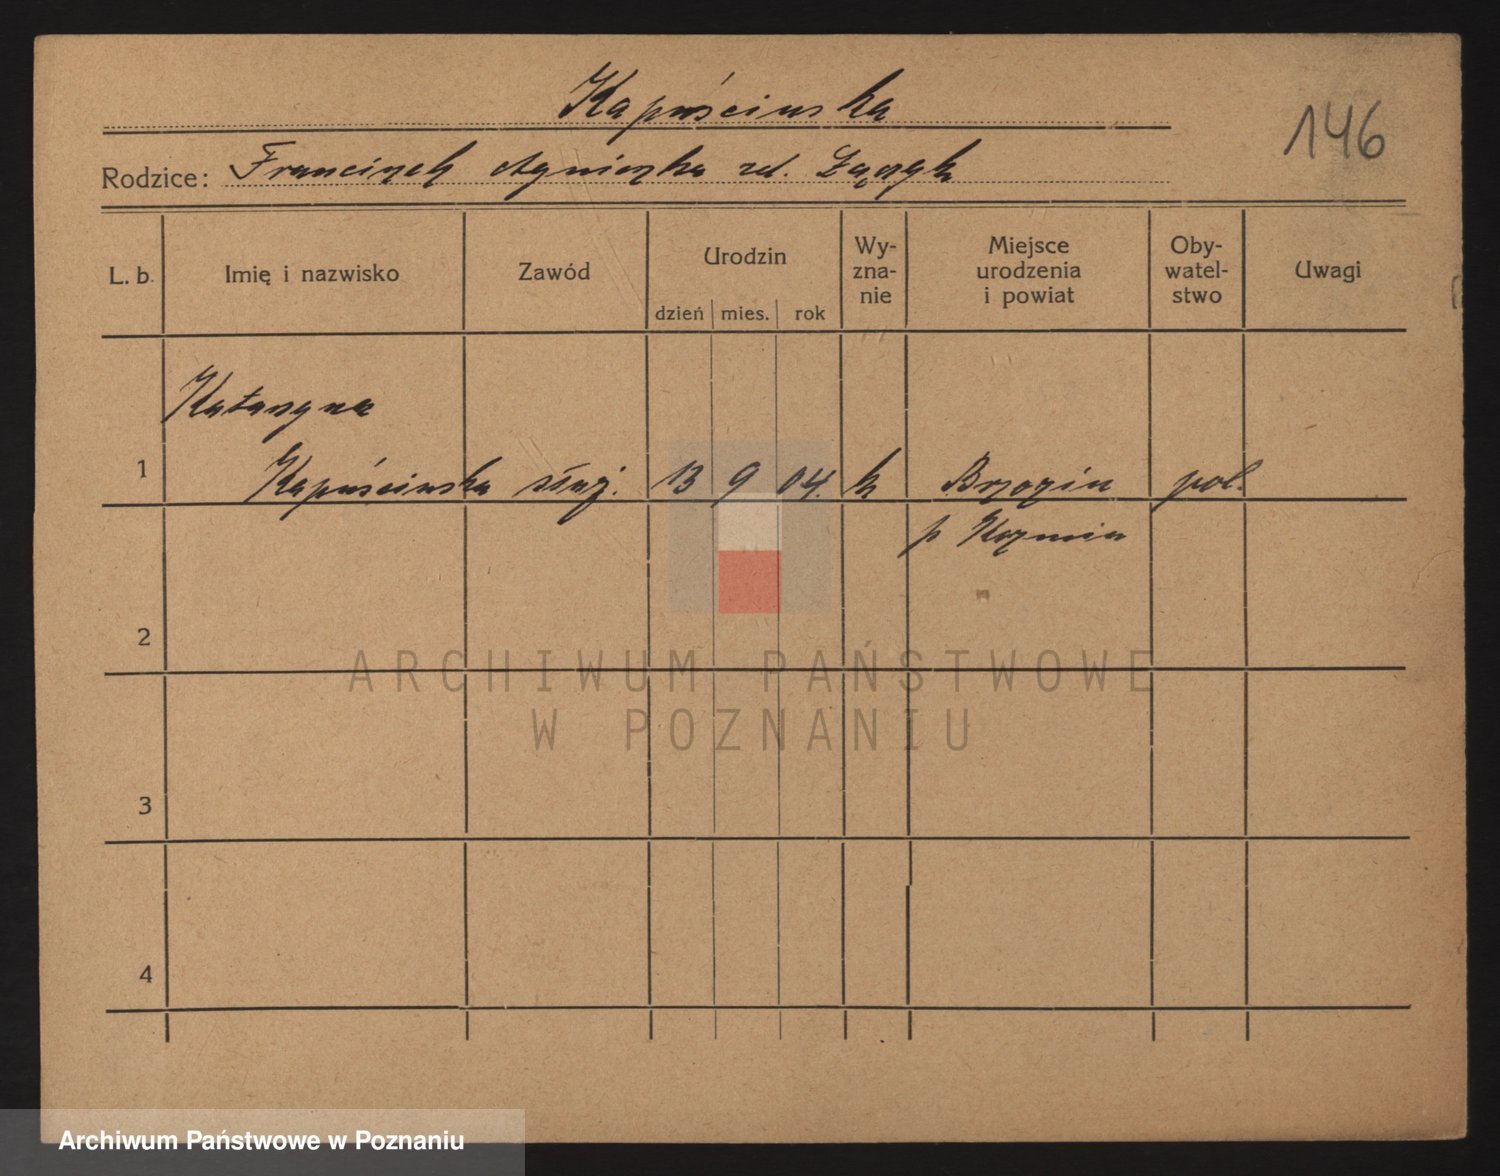 Kapuścinska
146
Rodzice: Franciszek Agnieszka zd.
L. b. Imię i nazwisko Zawód Urodzin dzień mies. rok Wy-zna-nie Miejsce urodzenia i powiat Oby-watel-stwo Uwagi
Katarzyna
1 Kapuścinska służ. 13 9 04. k pol.
p Kozmin
2
ARCHIWUM PAŃSTWOWE
W POZNANIU
3
4
Archiwum Państwowe w Poznaniu